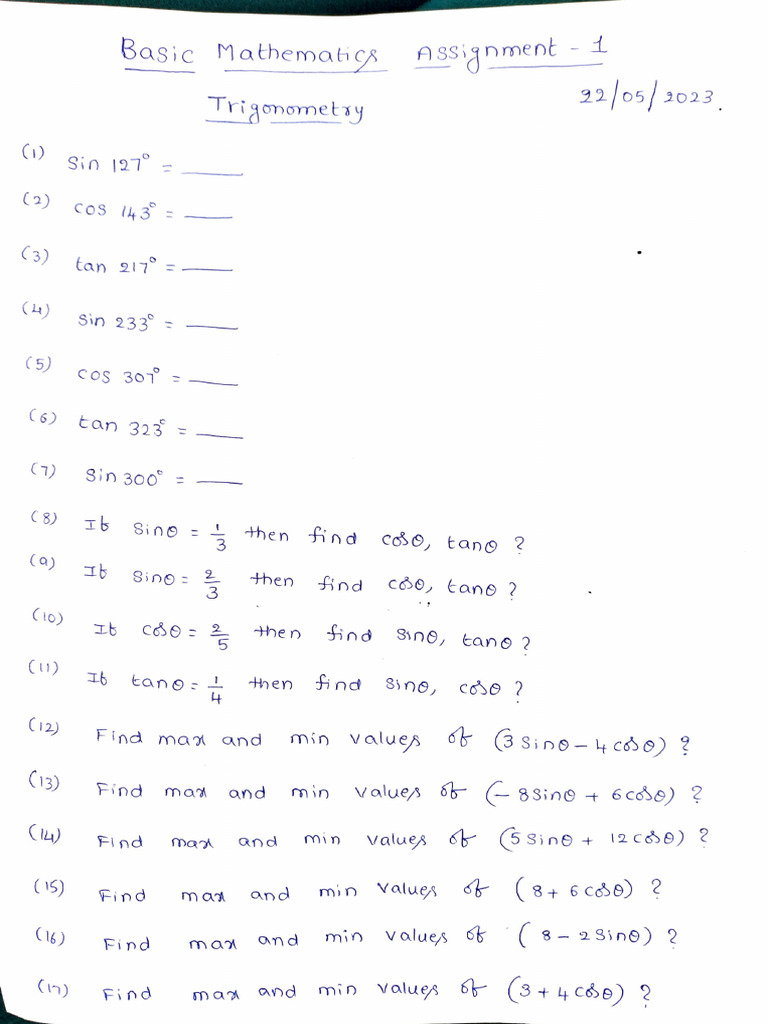 Basic Mathematics Assignment - 1
22/05/2023.
Trigonometry
(1) Sin 127° = ____
(2) cos 143° = ____
(3) tan 217° = ____
(4) Sin 233° = ____
(5) cos 307° = ____
(6) tan 323° = ____
(7) Sin 300° = ____
(8) If Sinθ = 1/3 then find cosθ, tanθ ?
(9) If Sinθ = 2/3 then find cosθ, tanθ ?
(10) If cosθ = 2/5 then find sinθ, tanθ ?
(11) If tanθ = 1/4 then find sinθ, cosθ ?
(12) Find max and min values of (3 Sinθ - 4 cosθ) ?
(13) Find max and min values of (- 8Sinθ + 6cosθ) ?
(14) Find max and min values of (5 Sinθ + 12 cosθ) ?
(15) Find max and min values of (8 + 6 cosθ) ?
(16) Find max and min values of (8 - 2 Sinθ) ?
(17) Find max and min values of (3 + 4 cosθ) ?